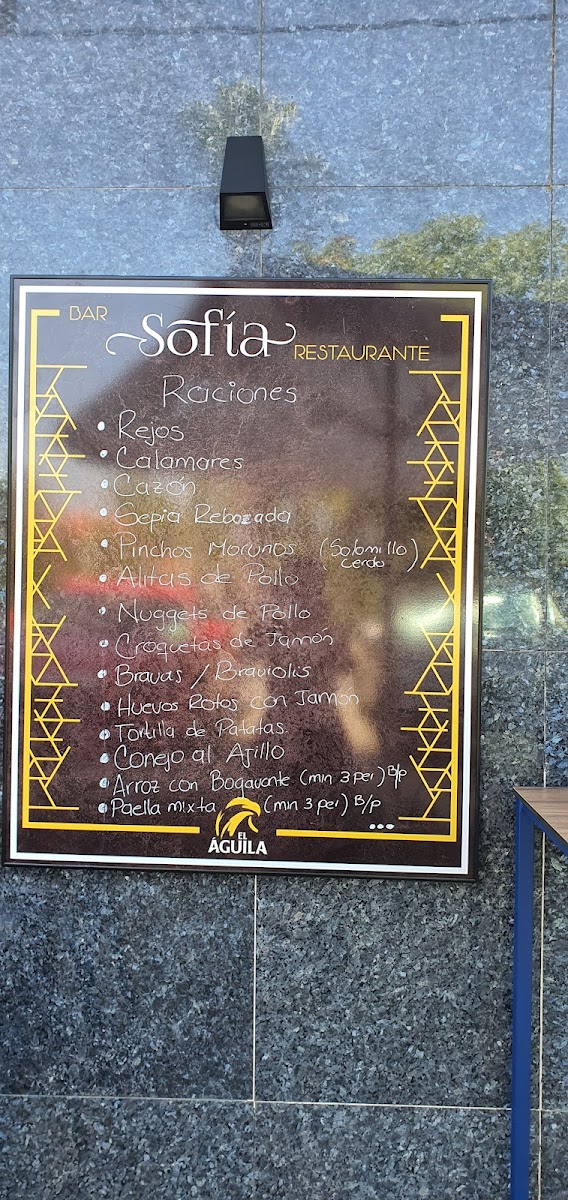 BAR
Sofía
RESTAURANTE
Raciones
• Rejos
• Calamares
• Cazón
• Sepia Rebozada
• Pinchos Morunos (Solomillo Cerdo)
• Alitas de Pollo
• Nuggets de Pollo
• Croquetas de Jamón
• Bravas / Braviolis
• Huevos Rotos con Jamón
• Tortilla de Patatas.
• Conejo al Ajillo
• Arroz con Bogavante (min 3 per) B/p
• Paella mixta (min 3 per) B/p
...
EL
ÁGUILA